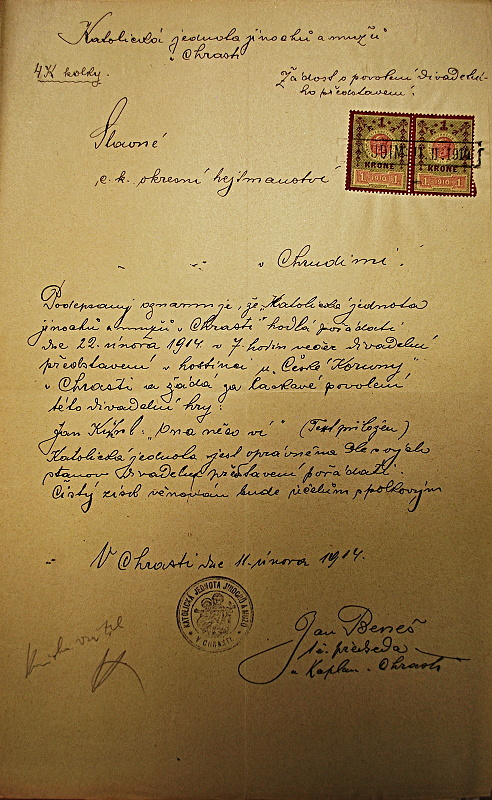 Katolická jednota jinochů a mužů
v Chrasti
4 K kolky.
Žádost o povolení divadelní-
ho představení.
1
KRONE
1 1910 1
1
KRONE
1 1910 1
Slavné
c. k. okresní hejtmanství
v Chrudimi.
Podepsaný oznamuje, že "Katolická jednota
jinochů a mužů v Chrasti" hodlá pořádati
dne 22. února 1914 v 7 hodin večer divadelní
představení v hostinci u "České Koruny"
v Chrasti a žádá za laskavé povolení
této divadelní hry:
Jan "Ona něco ví" (Text přiložen)
Katolická jednota jest oprávněna dle svých
stanov divadelní představení pořádati.
Čistý zisk věnován bude účelům spolkovým
V Chrasti dne 11. února 1914.
KATOLICKÁ JEDNOTA JINOCHŮ A MUŽŮ
V CHRASTI.
Jan Beneš
t. č. předseda
a Kaplan v Chrasti